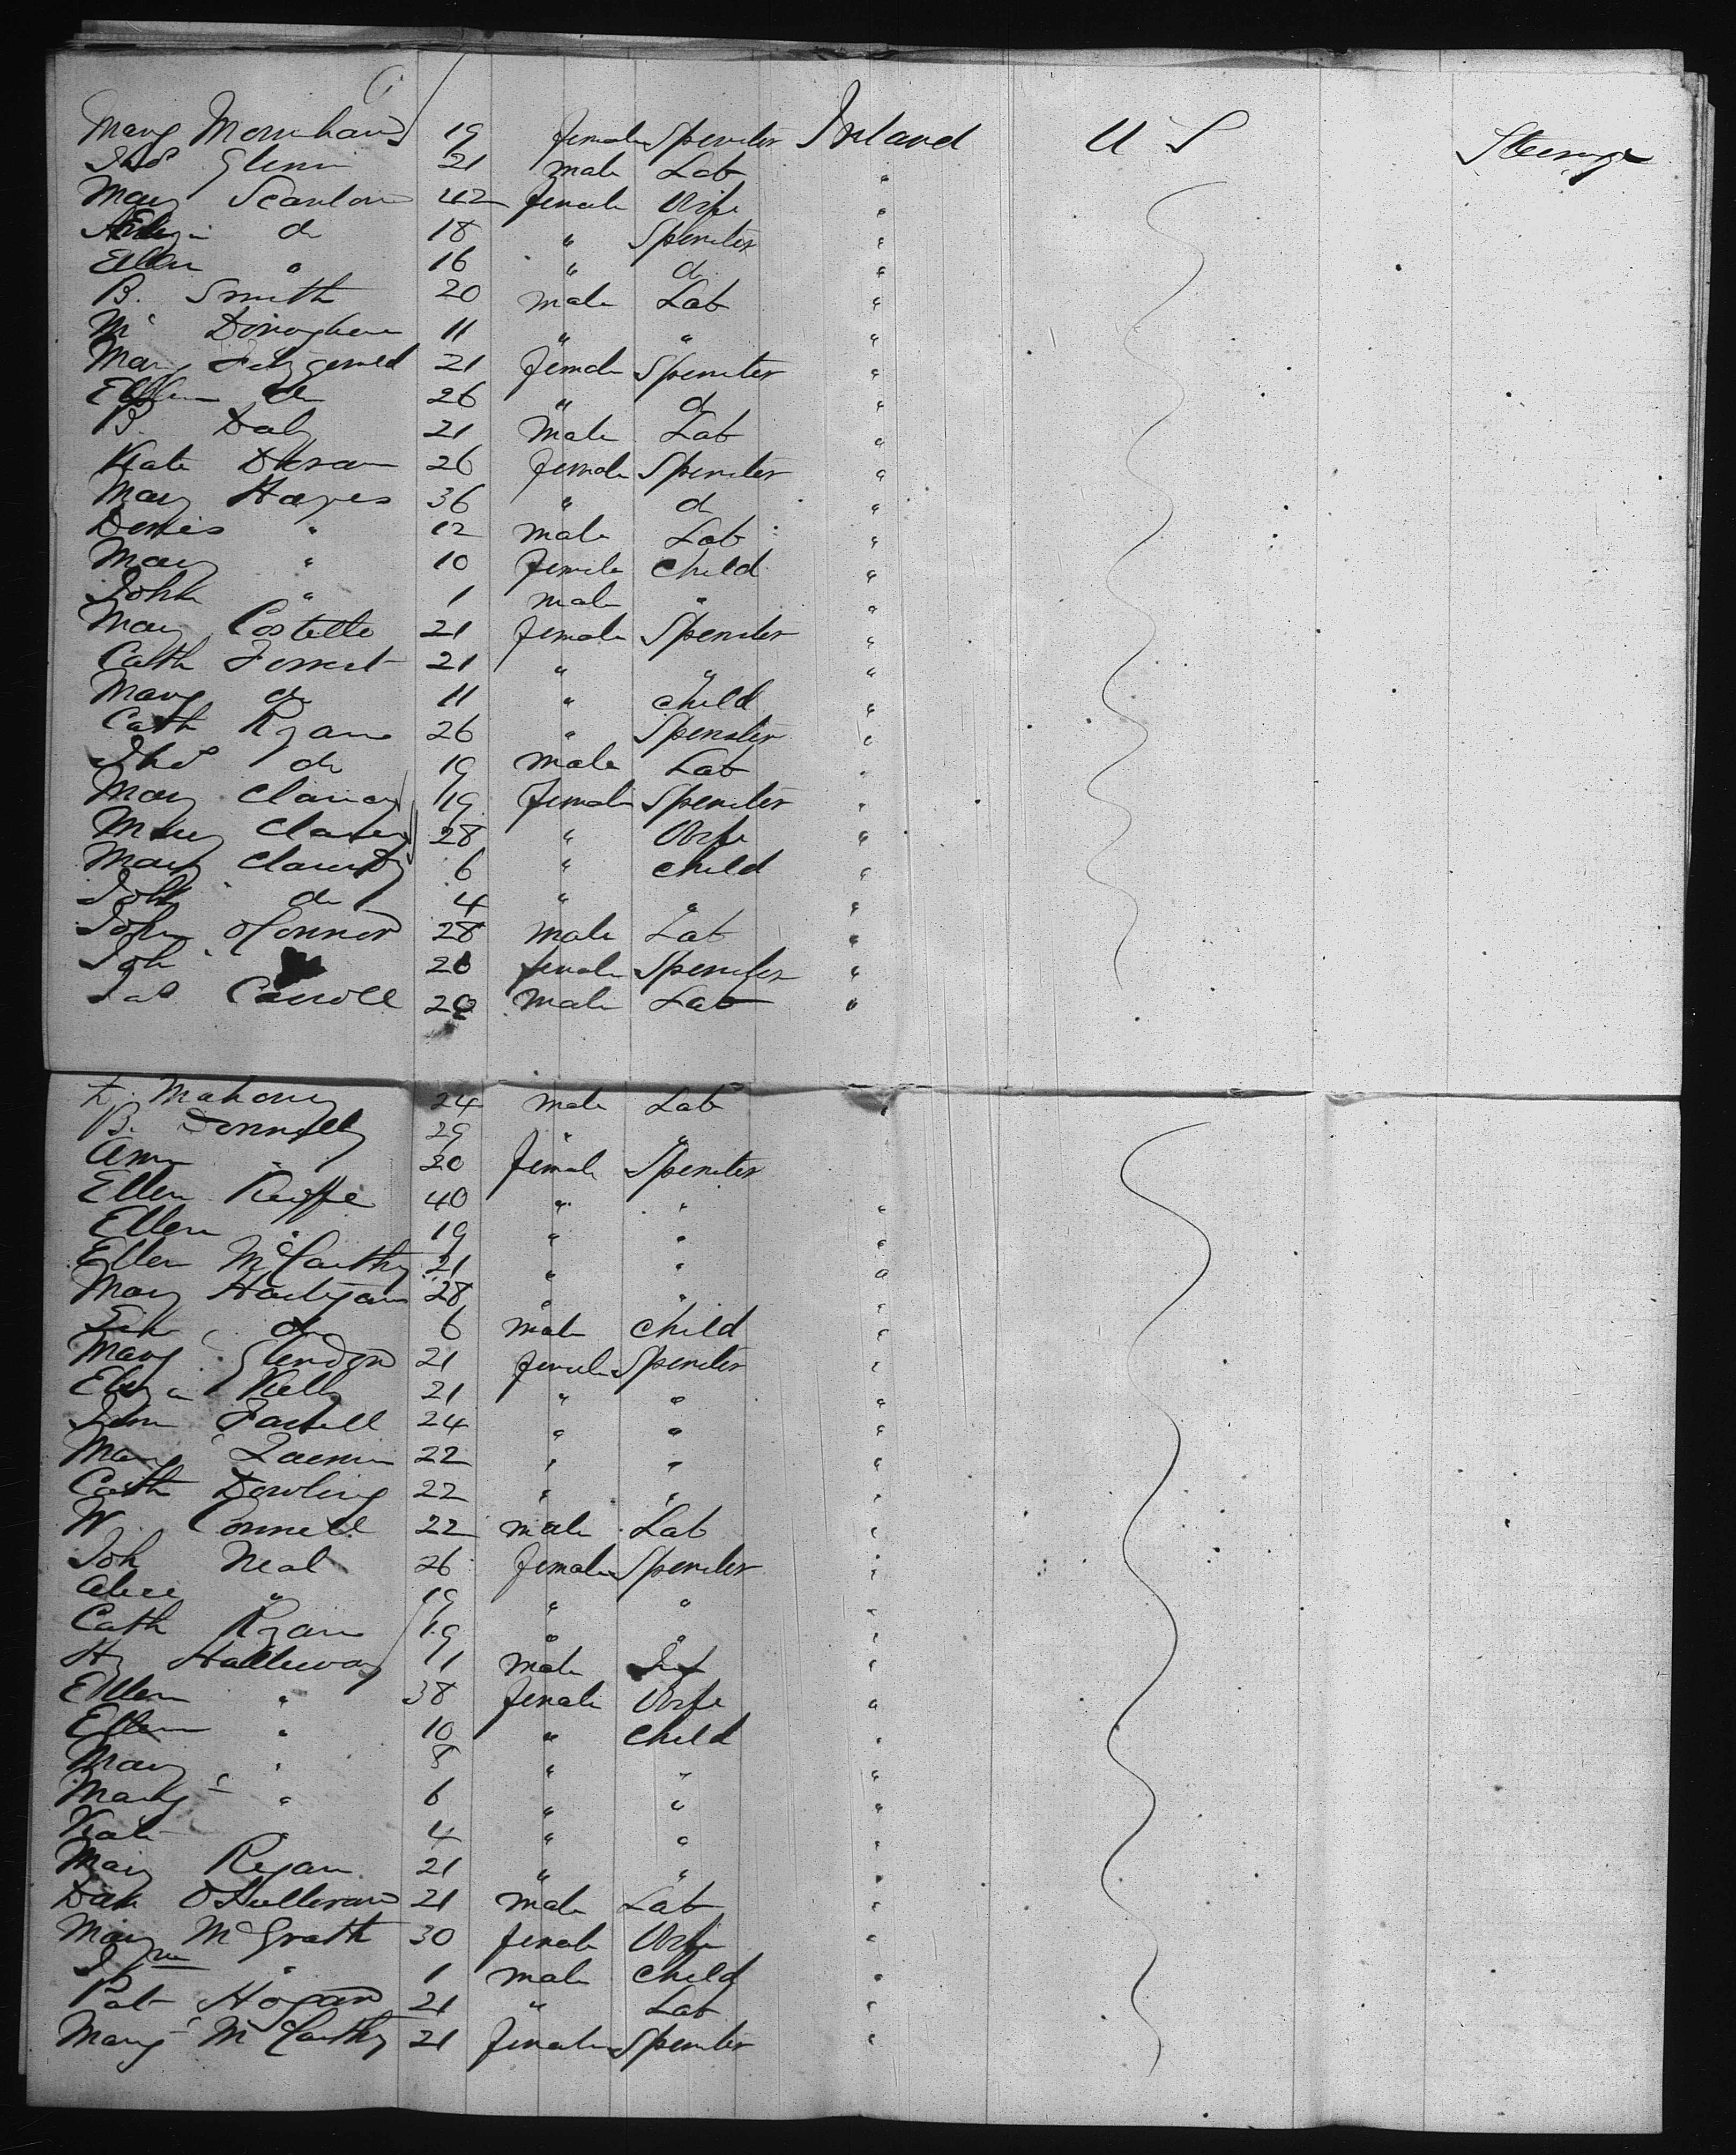 Marg Mornihand 19 female Spenster Irland U S Steerage
Thos Glenn 21 male Lab "
Mary Scanlon 42 female Wife "
Eliza do 18 " Spenster "
Ellen " 16 " do "
B. Smith 20 male Lab "
Ml Donoghue 11 " " "
Mary Fitzgerald 21 female Spenster "
Ellen do 26 " do "
B. Daly 21 Male Lab "
Kate Doran 26 female Spenster "
Mary Hayes 36 " do "
Denis " 12 male Lab "
Mary " 10 female Child "
John " 1 male " "
Mary Costello 21 female Spenster "
Cath Forrest 21 " " "
Marg do 11 " child "
Cath Ryan 26 " Spenster "
Thos do 19 male Lab "
Mary Clancy 19 female Spenster "
Mary Clancy 28 " Wife "
Mary Clancy 6 " child "
John do 4 " " "
John OConnor 28 male Lab "
Joh 20 female Spenster "
Jas Carroll 20 Male Lab "
T. Mahony 24 male Lab "
B. Donnelly 29 " "
Ann " 20 female Spenster
Ellen Keeffe 40 " " "
Ellen " 19 " " "
Ellen McCarthy 21 " " "
Mary Hartigan 28 " " "
do 6 male Child "
Marg 21 female Spenster "
Eliza Kelly 21 " " "
Farrell 24 " " "
Mary 22 " " "
Cath Dowling 22 " " "
W. Connell 22 male Lab "
Joh Neal 26 female Spenster "
Alice " 19 " " "
Cath Ryan 19 " " "
Hy Halleway 11 male "
Ellen " 38 female Wife "
Ellen " 10 " Child "
Mary " 8 " " "
Marg " 6 " " "
Kate " 4 " " "
Mary Regan 21 " " "
Dan OSullivan 21 male Lab "
Mary McGrath 30 female Wife "
" 1 male Child "
Pat Hogan 21 " Lab "
Marg McCarthy 21 female Spenster "